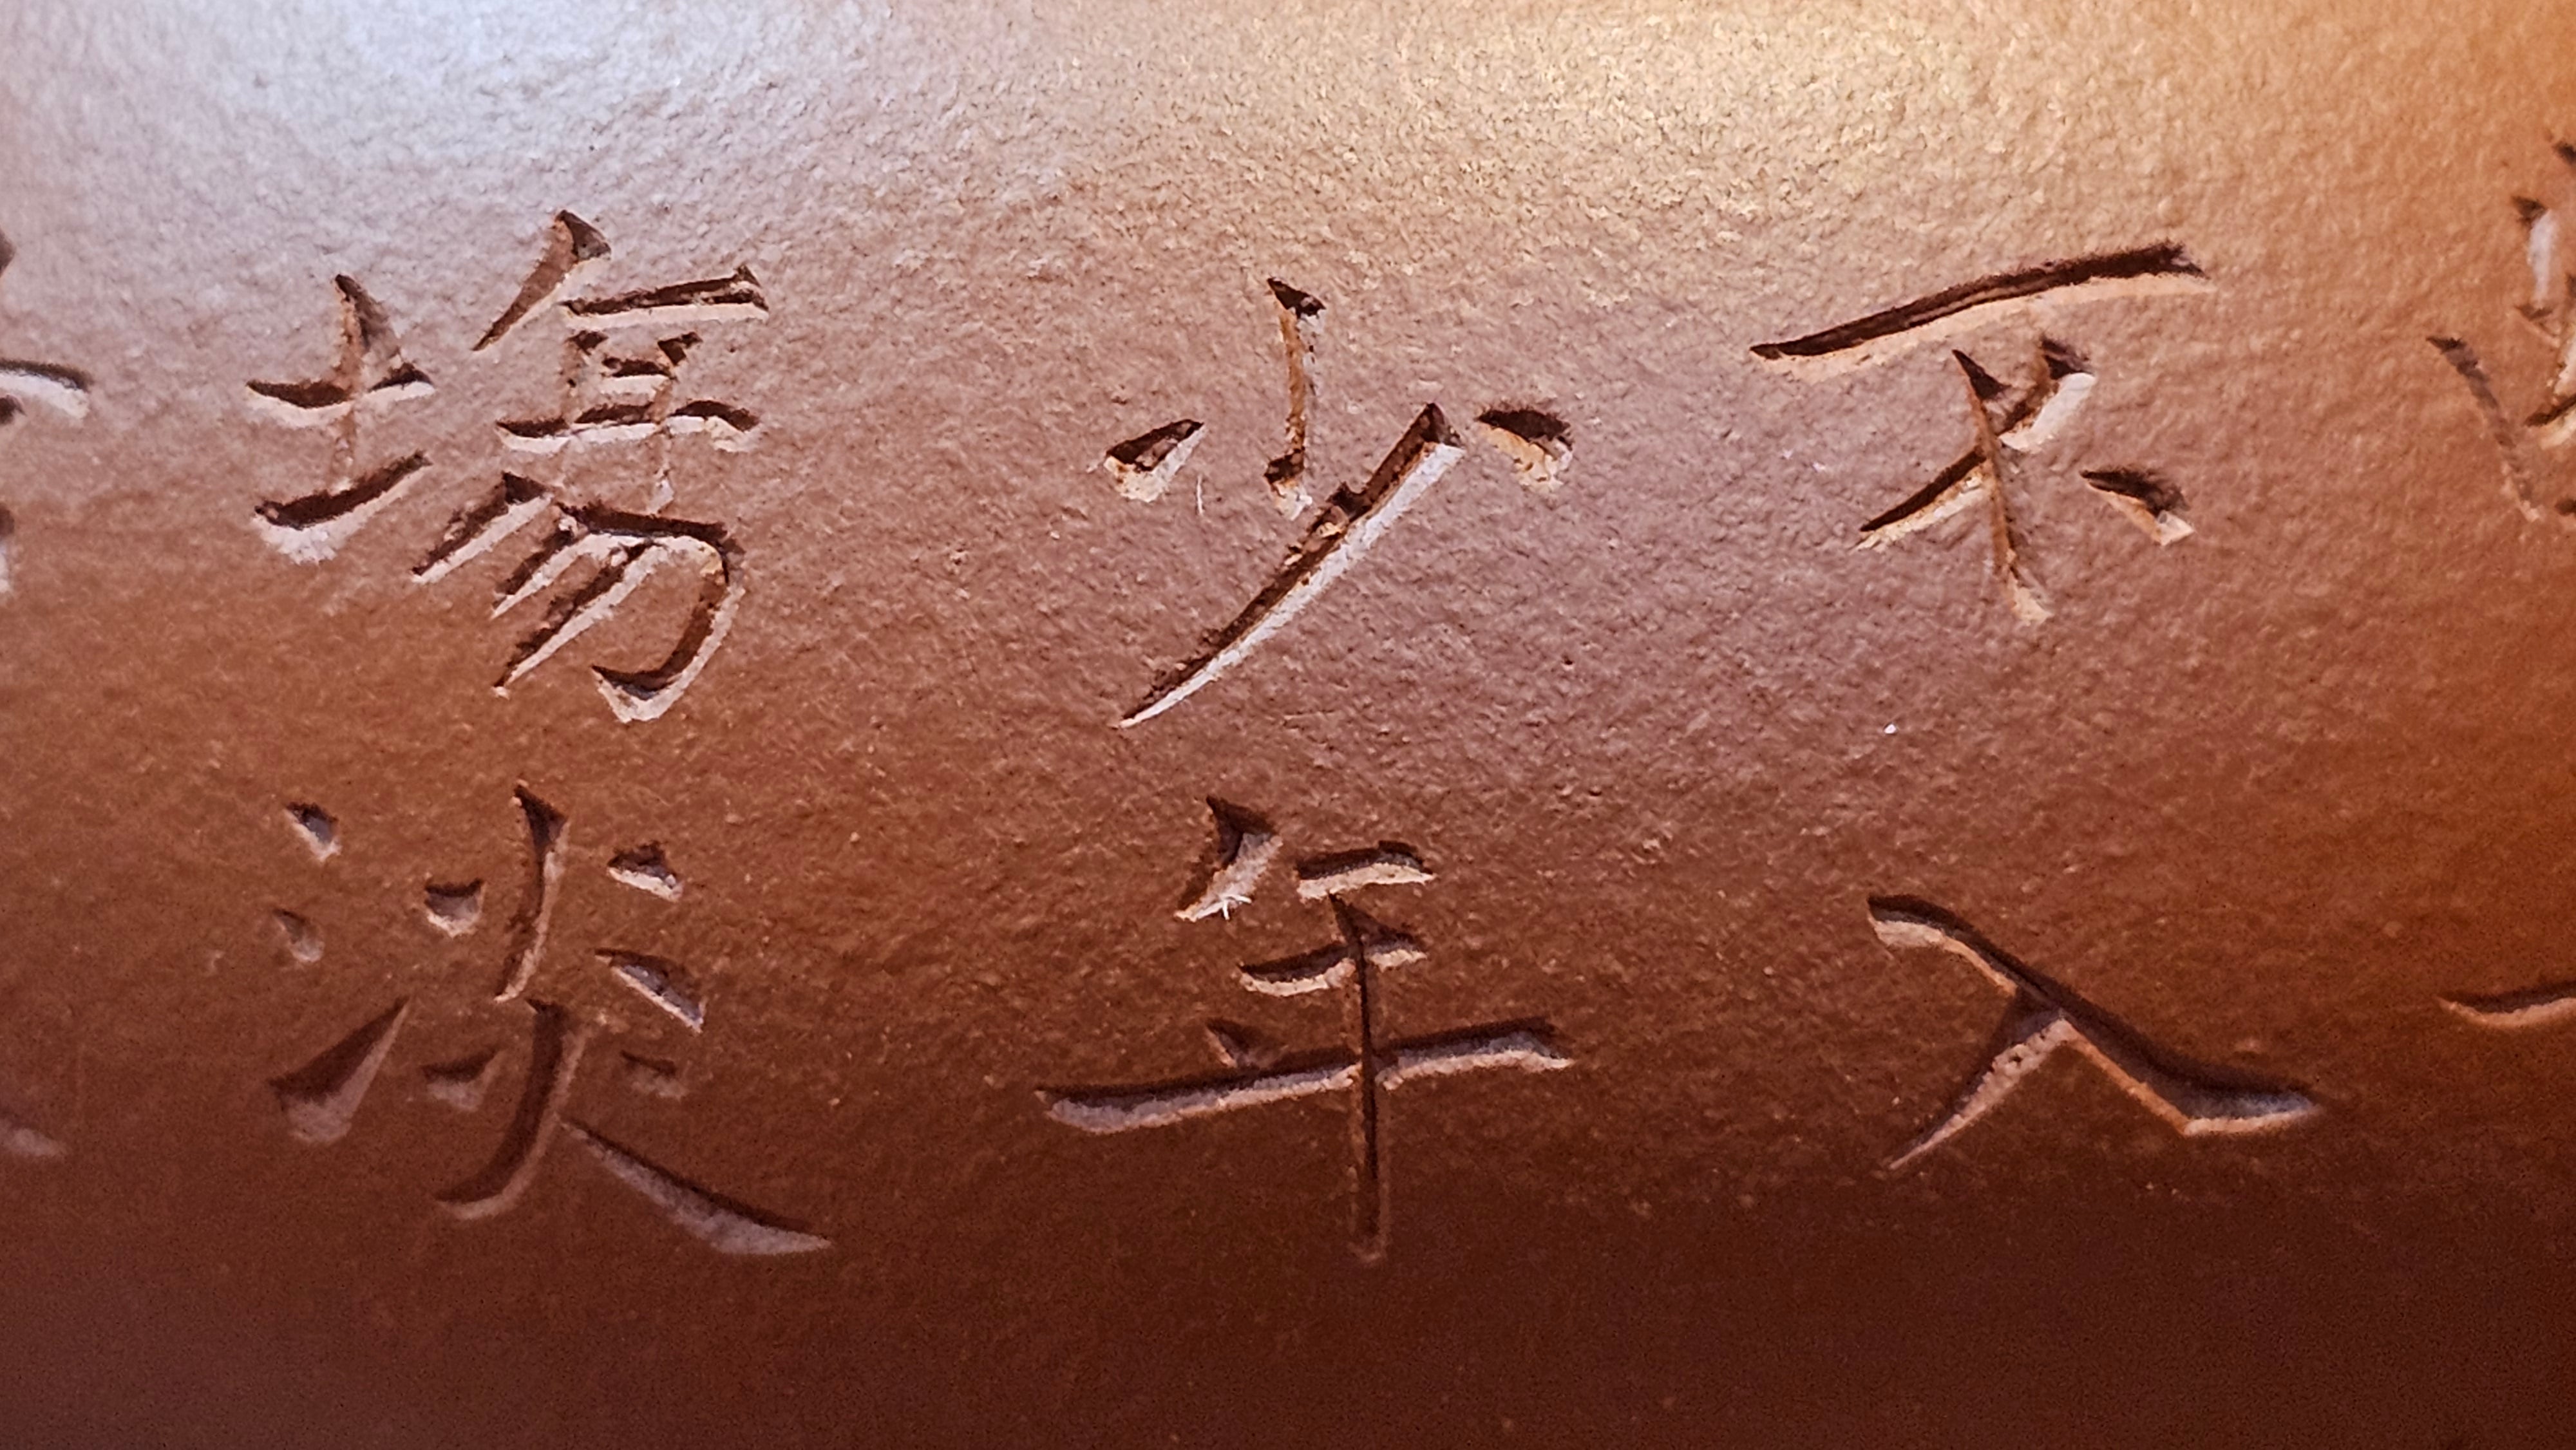 不入
少年
塲淡